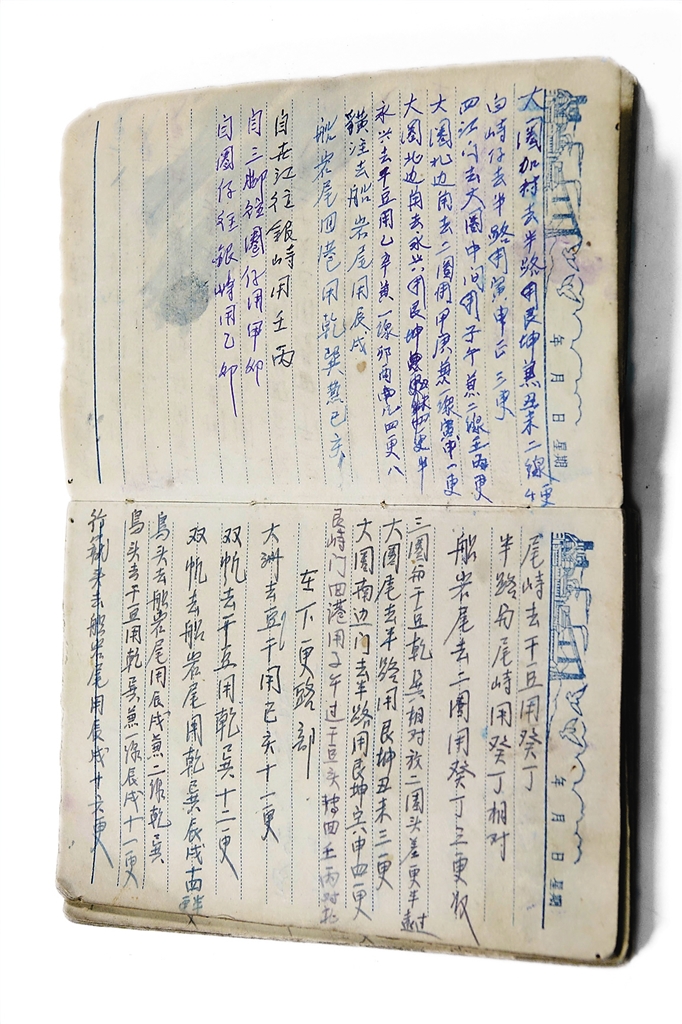 年 月 日 星期
大圈加村去半路用艮坤兼丑未二線 更
白峙仔去半路用寅申正三更
四江门去大圈中间用子午兼二線壬丙更
大圈北边角去二圈用甲庚兼一線寅申一更
大圈北边角去永兴用艮坤 更半
永兴去干豆用乙辛兼一線卯酉 四更八
去船岩尾用辰戌
船岩尾回港用乾巽兼巳亥
自 江往銀峙用壬丙
自三脚往圈仔用甲卯
自圈仔往銀峙用乙卯
年 月 日 星期
尾峙去干豆用癸丁
半路 尾峙用癸丁相对
船岩尾去二圈用癸丁三更收
三圈 干豆乾巽相对放二圈头差更半
大圈尾去半路用艮坤丑未三更
大圈南边门去半路用艮坤 申四更
峙门回港用子午过干豆头转回壬丙对
在下更路部
大洲去豆干用巳亥十一更
双帆去干豆用乾巽十二更
双帆去船岩尾用乾巽辰戌十四更半
鳥头去船岩尾用辰戌兼二線乾巽
鳥头去干豆用乾巽兼一線辰戌十一更
去船岩尾用辰戌十六更